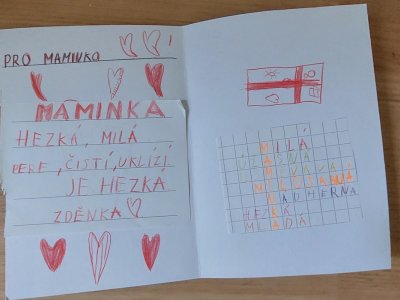 PRO MAMINKO
MAMINKA
HEZKÁ, MILÁ
PERE, ČISTÍ, UKLÍZÍ
JE HEZKÁ
ZDĚNKA
MILÁ
ÚŽASNÁ
MILOVANÁ
NÁDHERNÁ
HEZKÁ
MLADÁ